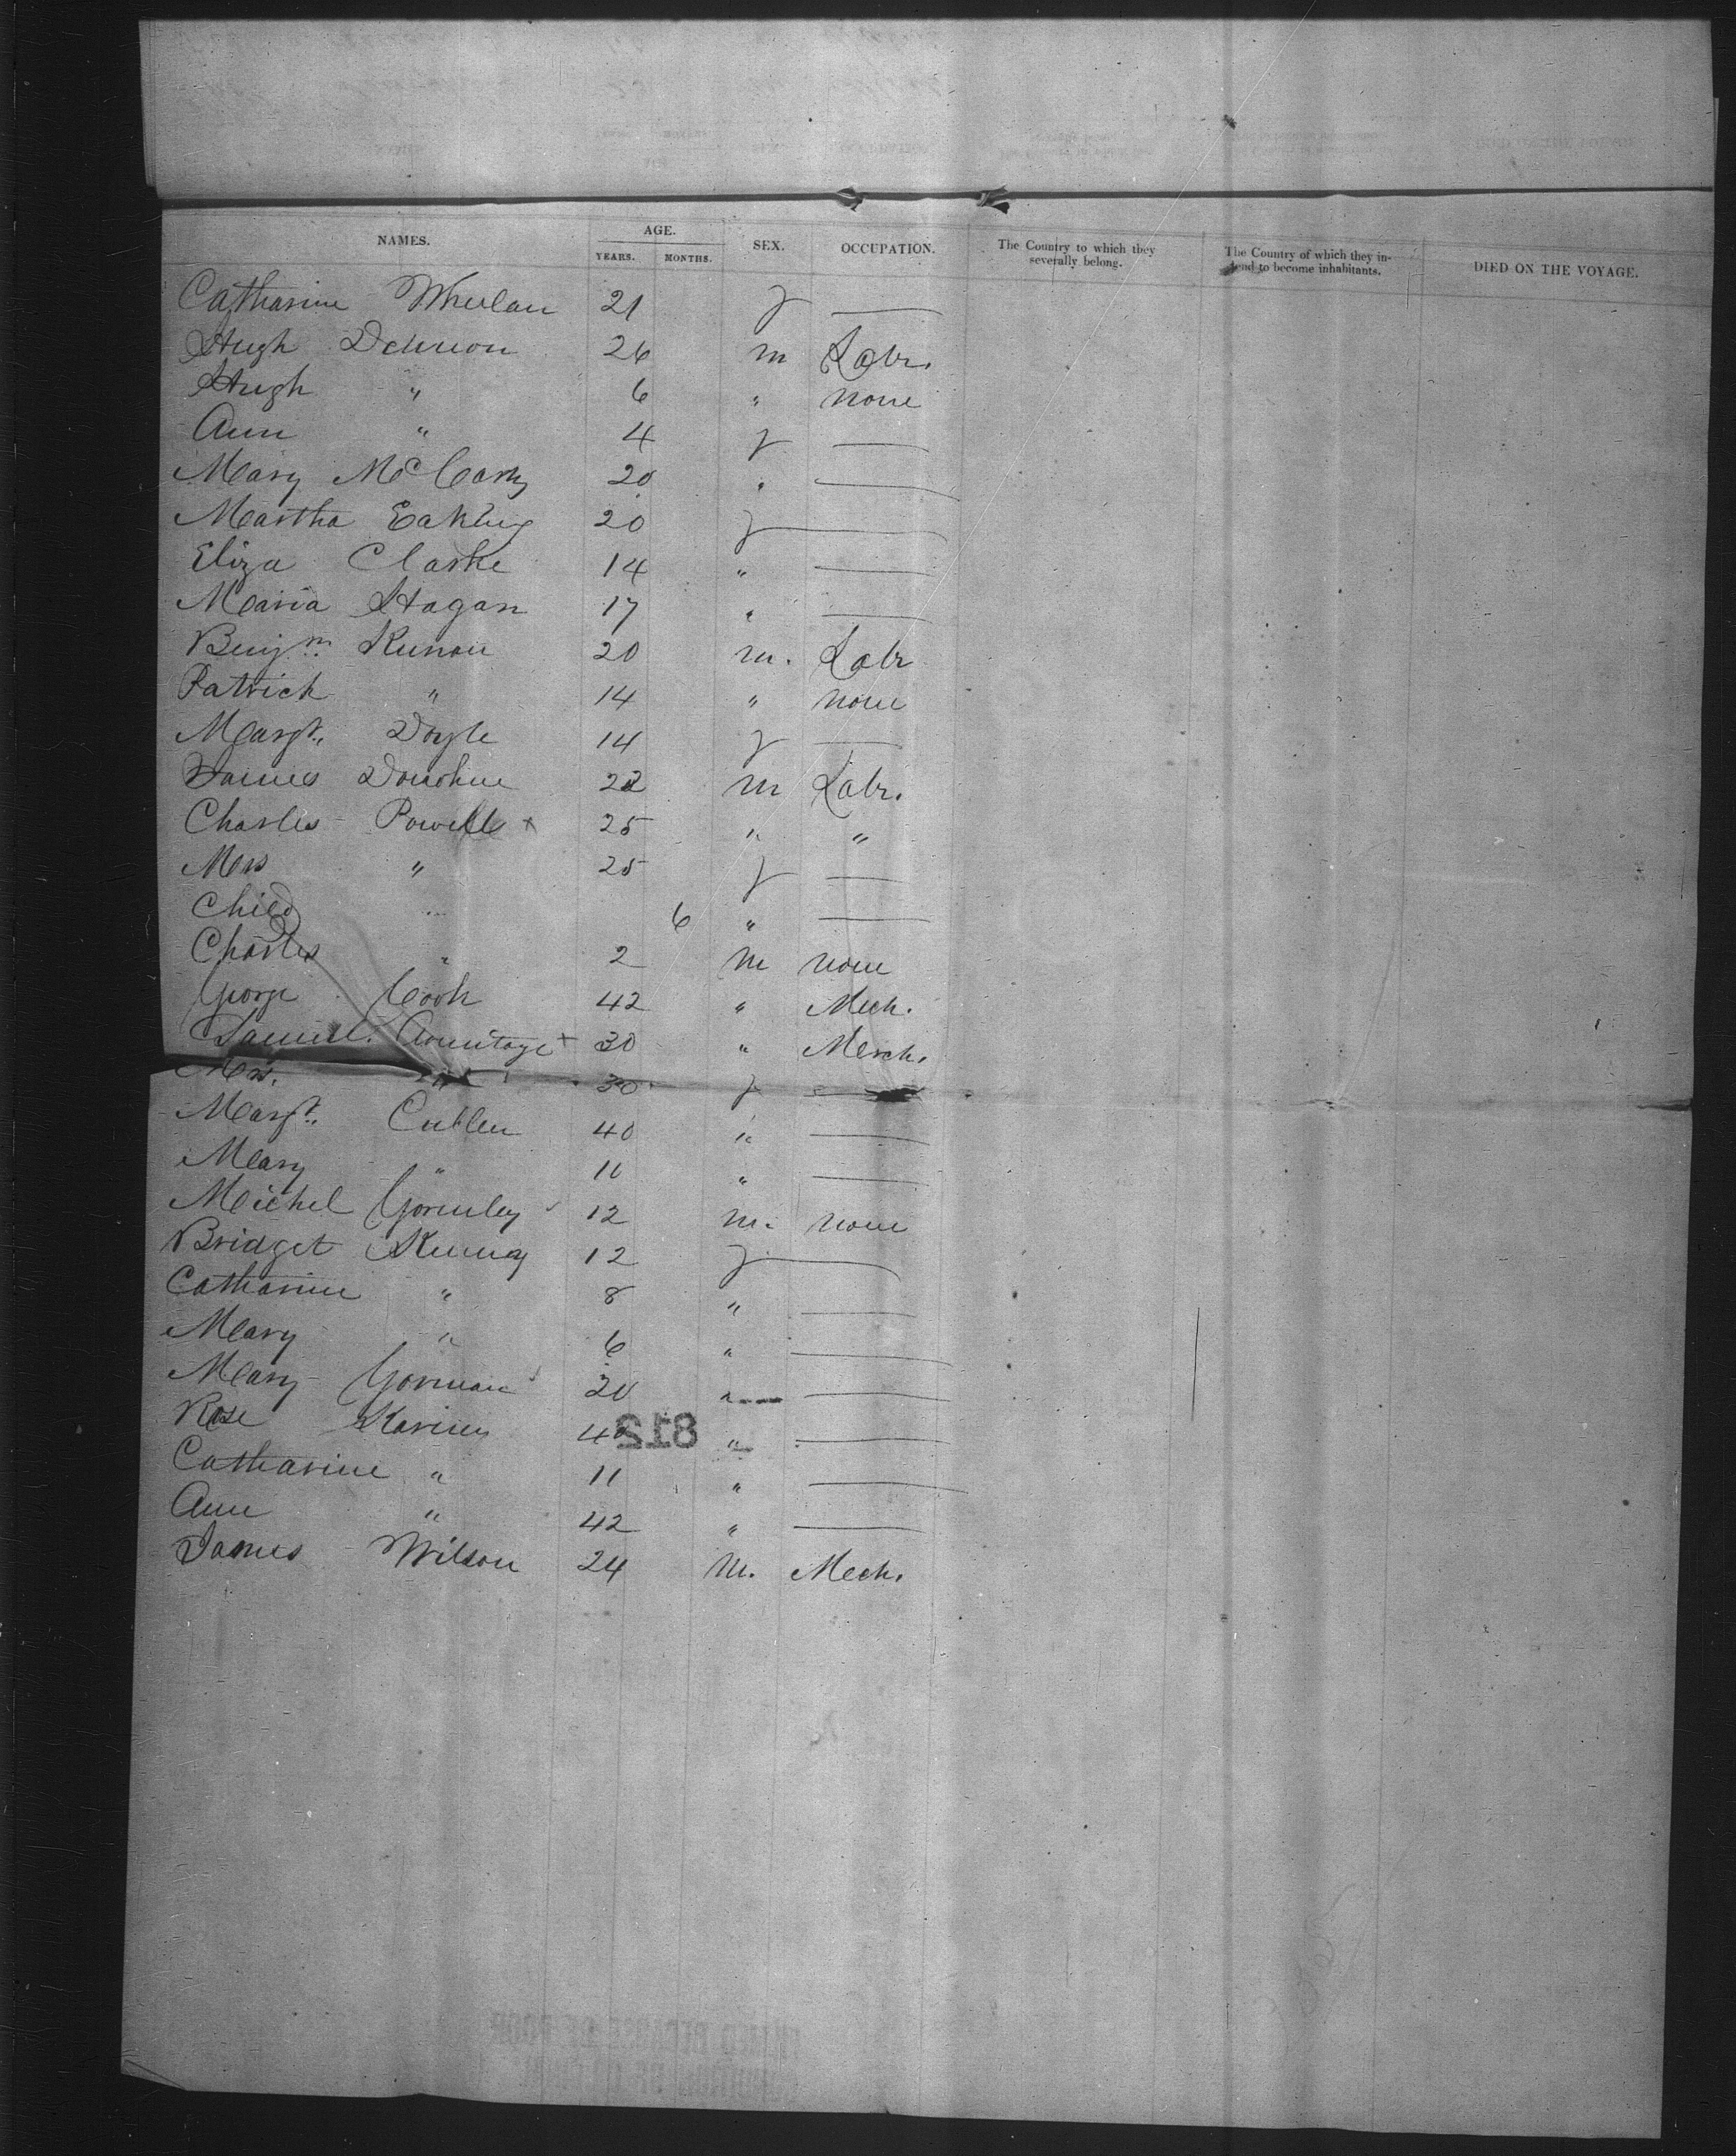 NAMES. AGE. SEX. OCCUPATION. The Country to which they severally belong. The Country of which they intend to become inhabitants. DIED ON THE VOYAGE.
YEARS. MONTHS.
Catharine Whelan 21 f —
Hugh 26 m Labr.
Hugh " 6 " none
Ann " 4 f —
Mary McCarty 20 " —
Martha 20 f —
Eliza Clarke 14 " —
Maria Hagan 17 " —
Benjn. 20 m. Labr
Patrick " 14 " none
Margt. Doyle 14 f —
James Donohue 22 m Labr.
Charles Powell x 25 " "
Mrs " 25 f —
Child " 6 " —
Charles " 2 m none
George Cook 42 " Mech.
Samuel. Armitage x 30 " Merch.
Mrs. " 30 f —
Margt. Cullen 40 " —
Mary " 11 " —
Michel Gormley 12 m. none
Bridget Kenney 12 f —
Catharine " 8 " —
Mary " 6 " —
Mary Gorman 20 " —
Rose 40 " —
Catharine " 11 " —
Ann " 42 " —
James Wilson 24 m. Mech.
812